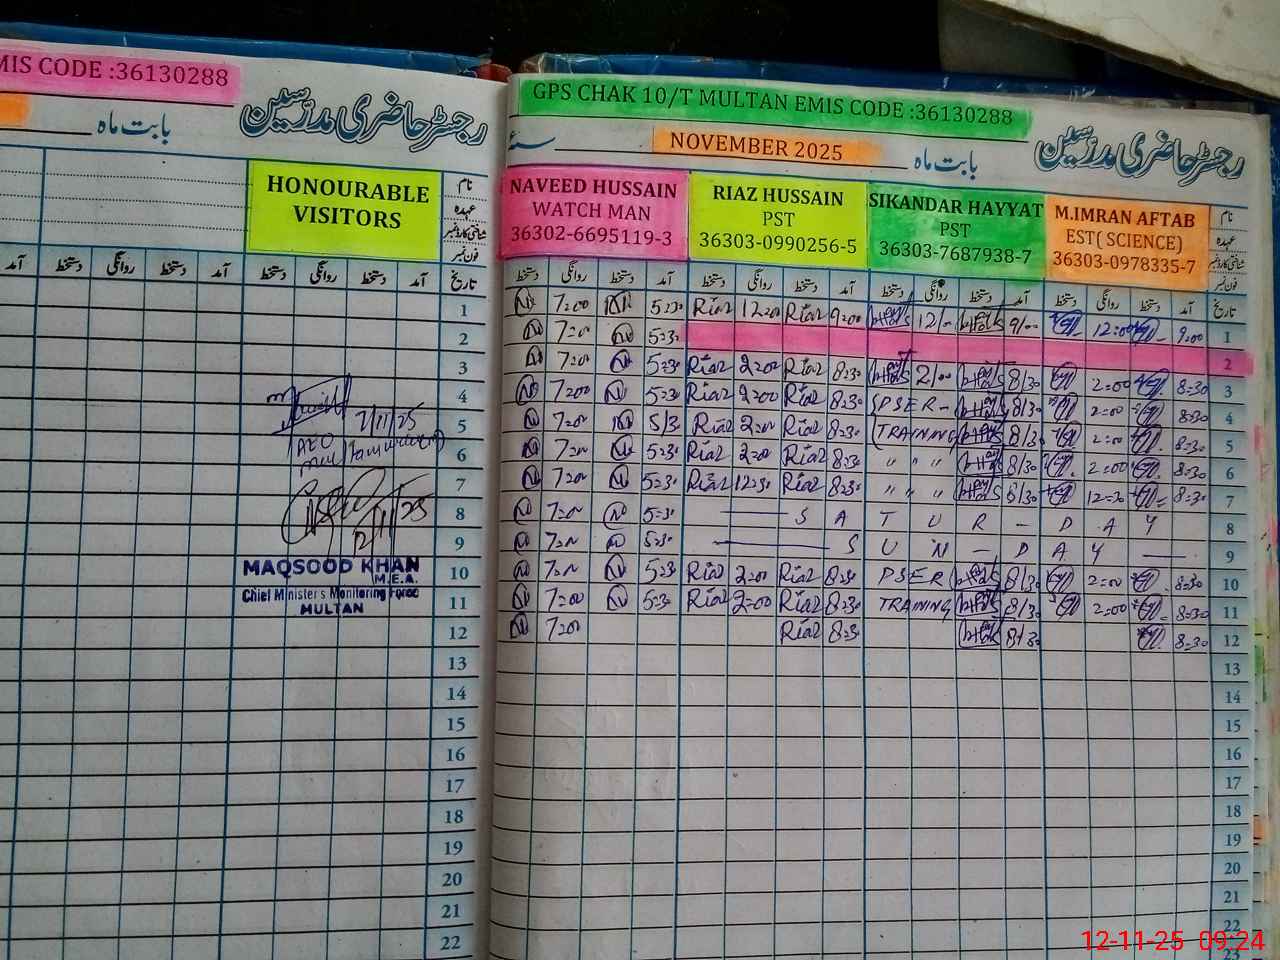 EMIS CODE :36130288
رجسٹر حاضری مدرسین
بابت ماہ
HONOURABLE
VISITORS
نام
عہدہ
شناختی کارڈ نمبر
فون نمبر
آمد دستخط روانگی دستخط آمد دستخط روانگی دستخط آمد تاریخ
1
2
3
4
5
6
7
8
9
10
11
12
13
14
15
16
17
18
19
20
21
22
7/11/25
AEO
12/11/25
MAQSOOD KHAN
M.E.A.
Chief Ministers Monitoring Force
MULTAN
GPS CHAK 10/T MULTAN EMIS CODE :36130288
رجسٹر حاضری مدرسین
بابت ماہ
NOVEMBER 2025
NAVEED HUSSAIN
WATCH MAN
36302-6695119-3
RIAZ HUSSAIN
PST
36303-0990256-5
SIKANDAR HAYYAT
PST
36303-7687938-7
M.IMRAN AFTAB
EST( SCIENCE)
36303-0978335-7
نام
عہدہ
شناختی کارڈ نمبر
فون نمبر
دستخط روانگی دستخط آمد دستخط روانگی دستخط آمد دستخط روانگی دستخط آمد دستخط روانگی دستخط آمد تاریخ
N 7=00 N 5=30 Riaz 12=00 Riaz 9=00 12/- 9/00 12=00 9=00 1
N 7=00 N 5=30 2
N 7=00 N 5=30 Riaz 2=00 Riaz 8=30 2/00 8/30 2=00 8=30 3
N 7=00 N 5=30 Riaz 2=00 Riaz 8=30 PSER - 8/30 2=00 8=30 4
N 7=00 N 5/30 Riaz 2=00 Riaz 8=30 TRAINING 8/30 2=00 8=30 5
N 7=00 N 5=30 Riaz 2=00 Riaz 8=30 " " " 8/30 2=00 8=30 6
N 7=00 N 5=30 Riaz 12=30 Riaz 8=30 " " " 8/30 12=30 8=30 7
N 7=00 N 5=30 — S A T U R - D A Y 8
N 7=00 N 5=30 — S U N - D A Y — 9
N 7=00 N 5=30 Riaz 2=00 Riaz 8=30 PSER 8/30 2=00 8=30 10
N 7=00 N 5=30 Riaz 2=00 Riaz 8=30 TRAINING 8/30 2=00 8=30 11
N 7=00 Riaz 8=30 8/30 8=30 12
13
14
15
16
17
18
19
20
21
22
23
12-11-25 09:24